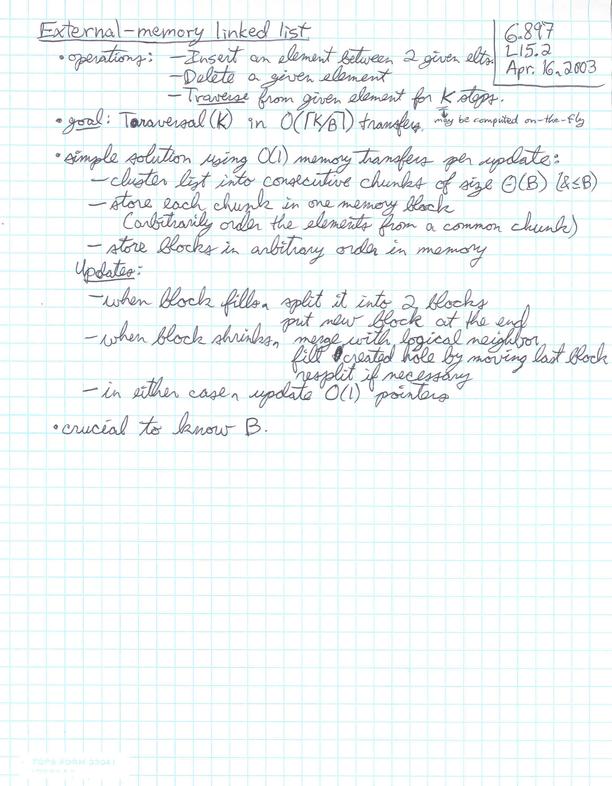 External-memory linked list
6.897
L15.2
Apr. 16, 2003
• operations: – Insert an element between 2 given elts.
– Delete a given element
– Traverse from given element for K steps.
may be computed on-the-fly
• goal: Traversal(K) in O(⌈K/B⌉) transfers.
• simple solution using O(1) memory transfers per update:
– cluster list into consecutive chunks of size Θ(B) (& ≤ B)
– store each chunk in one memory block
(arbitrarily order the elements from a common chunk)
– store blocks in arbitrary order in memory
Updates:
– when block fills, split it into 2 blocks
put new block at the end
– when block shrinks, merge with logical neighbor
fill created hole by moving last block
resplit if necessary
– in either case, update O(1) pointers
• crucial to know B.